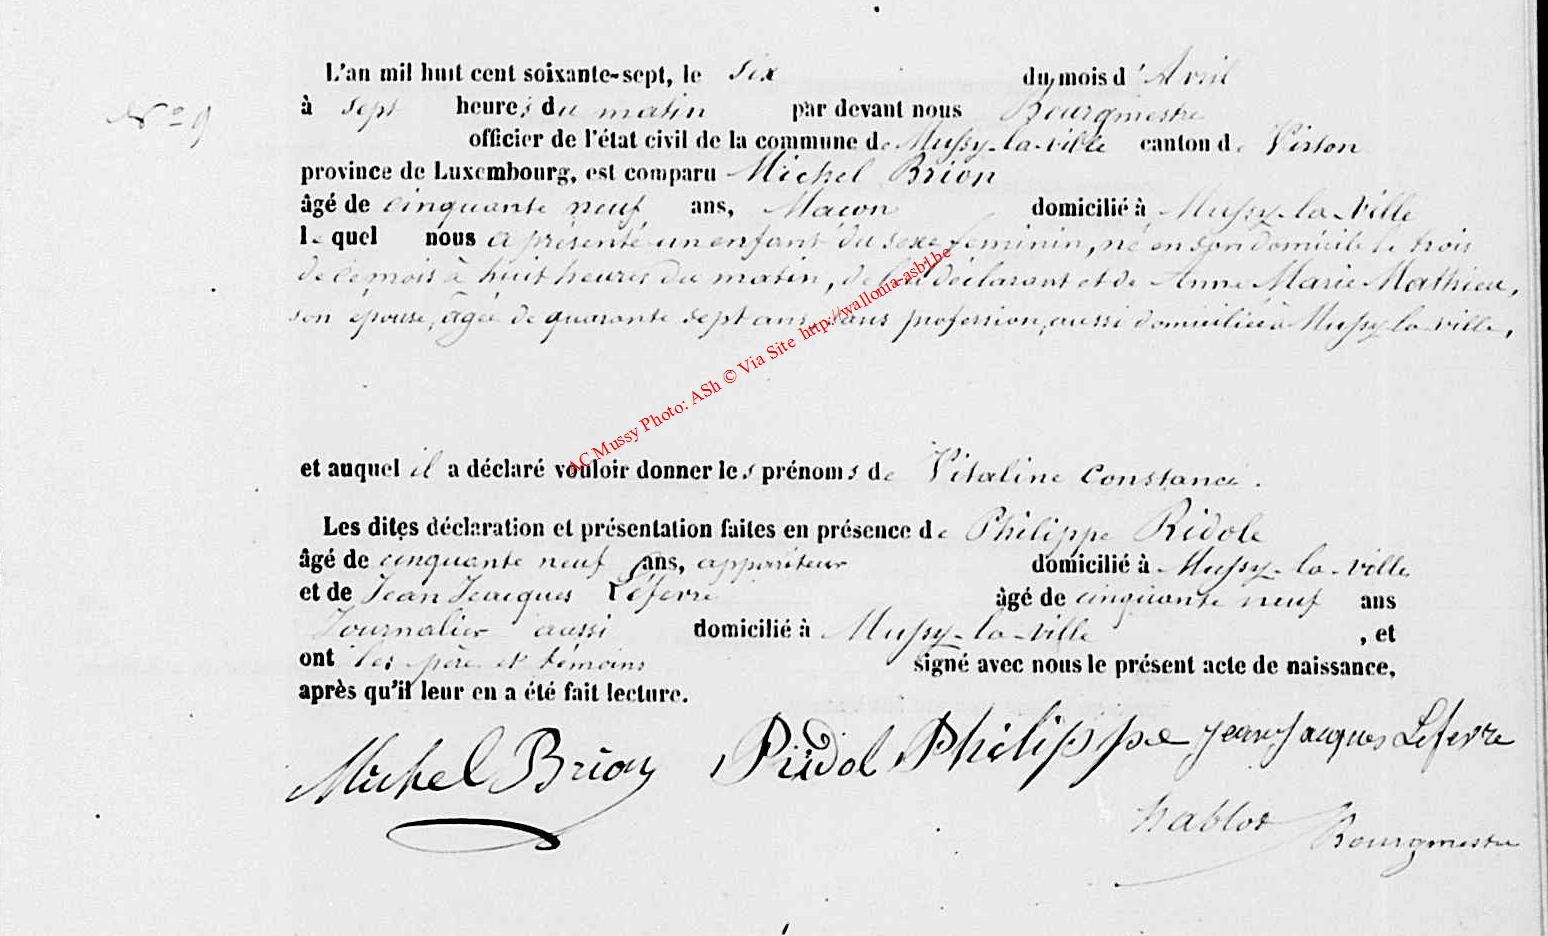 L'an mil huit cent soixante-sept, le six du mois d'Avril
N° 9
à sept heures du matin par devant nous Bourgmestre
officier de l'état civil de la commune de Mussy-la-ville canton de Virton
province de Luxembourg, est comparu Michel Brion
âgé de cinquante neuf ans, Maçon domicilié à Mussy-la-Ville
le quel nous a présenté un enfant du sexe feminin, né en son domicile le trois
de ce mois à huit heures du matin, de lui déclarant et de Anne Marie Mathieu,
son épouse, âgée de quarante sept ans, sans profession, aussi domiciliée à Mussy-la-ville,
AC Mussy Photo: ASh © Via Site http://wallonia-asbl.be
et auquel il a déclaré vouloir donner les prénoms de Vitaline Constance.
Les dites déclaration et présentation faites en présence de Philippe Ridole
âgé de cinquante neuf ans, appariteur domicilié à Mussy-la-ville
et de Jean Jacques Léfevre âgé de cinquante neuf ans
Journalier aussi domicilié à Mussy-la-ville , et
ont les père et témoins signé avec nous le présent acte de naissance,
après qu'il leur en a été fait lecture.
Michel Brion Ridol Philippe jean jacques Lefevre
hablot Bourgmestre